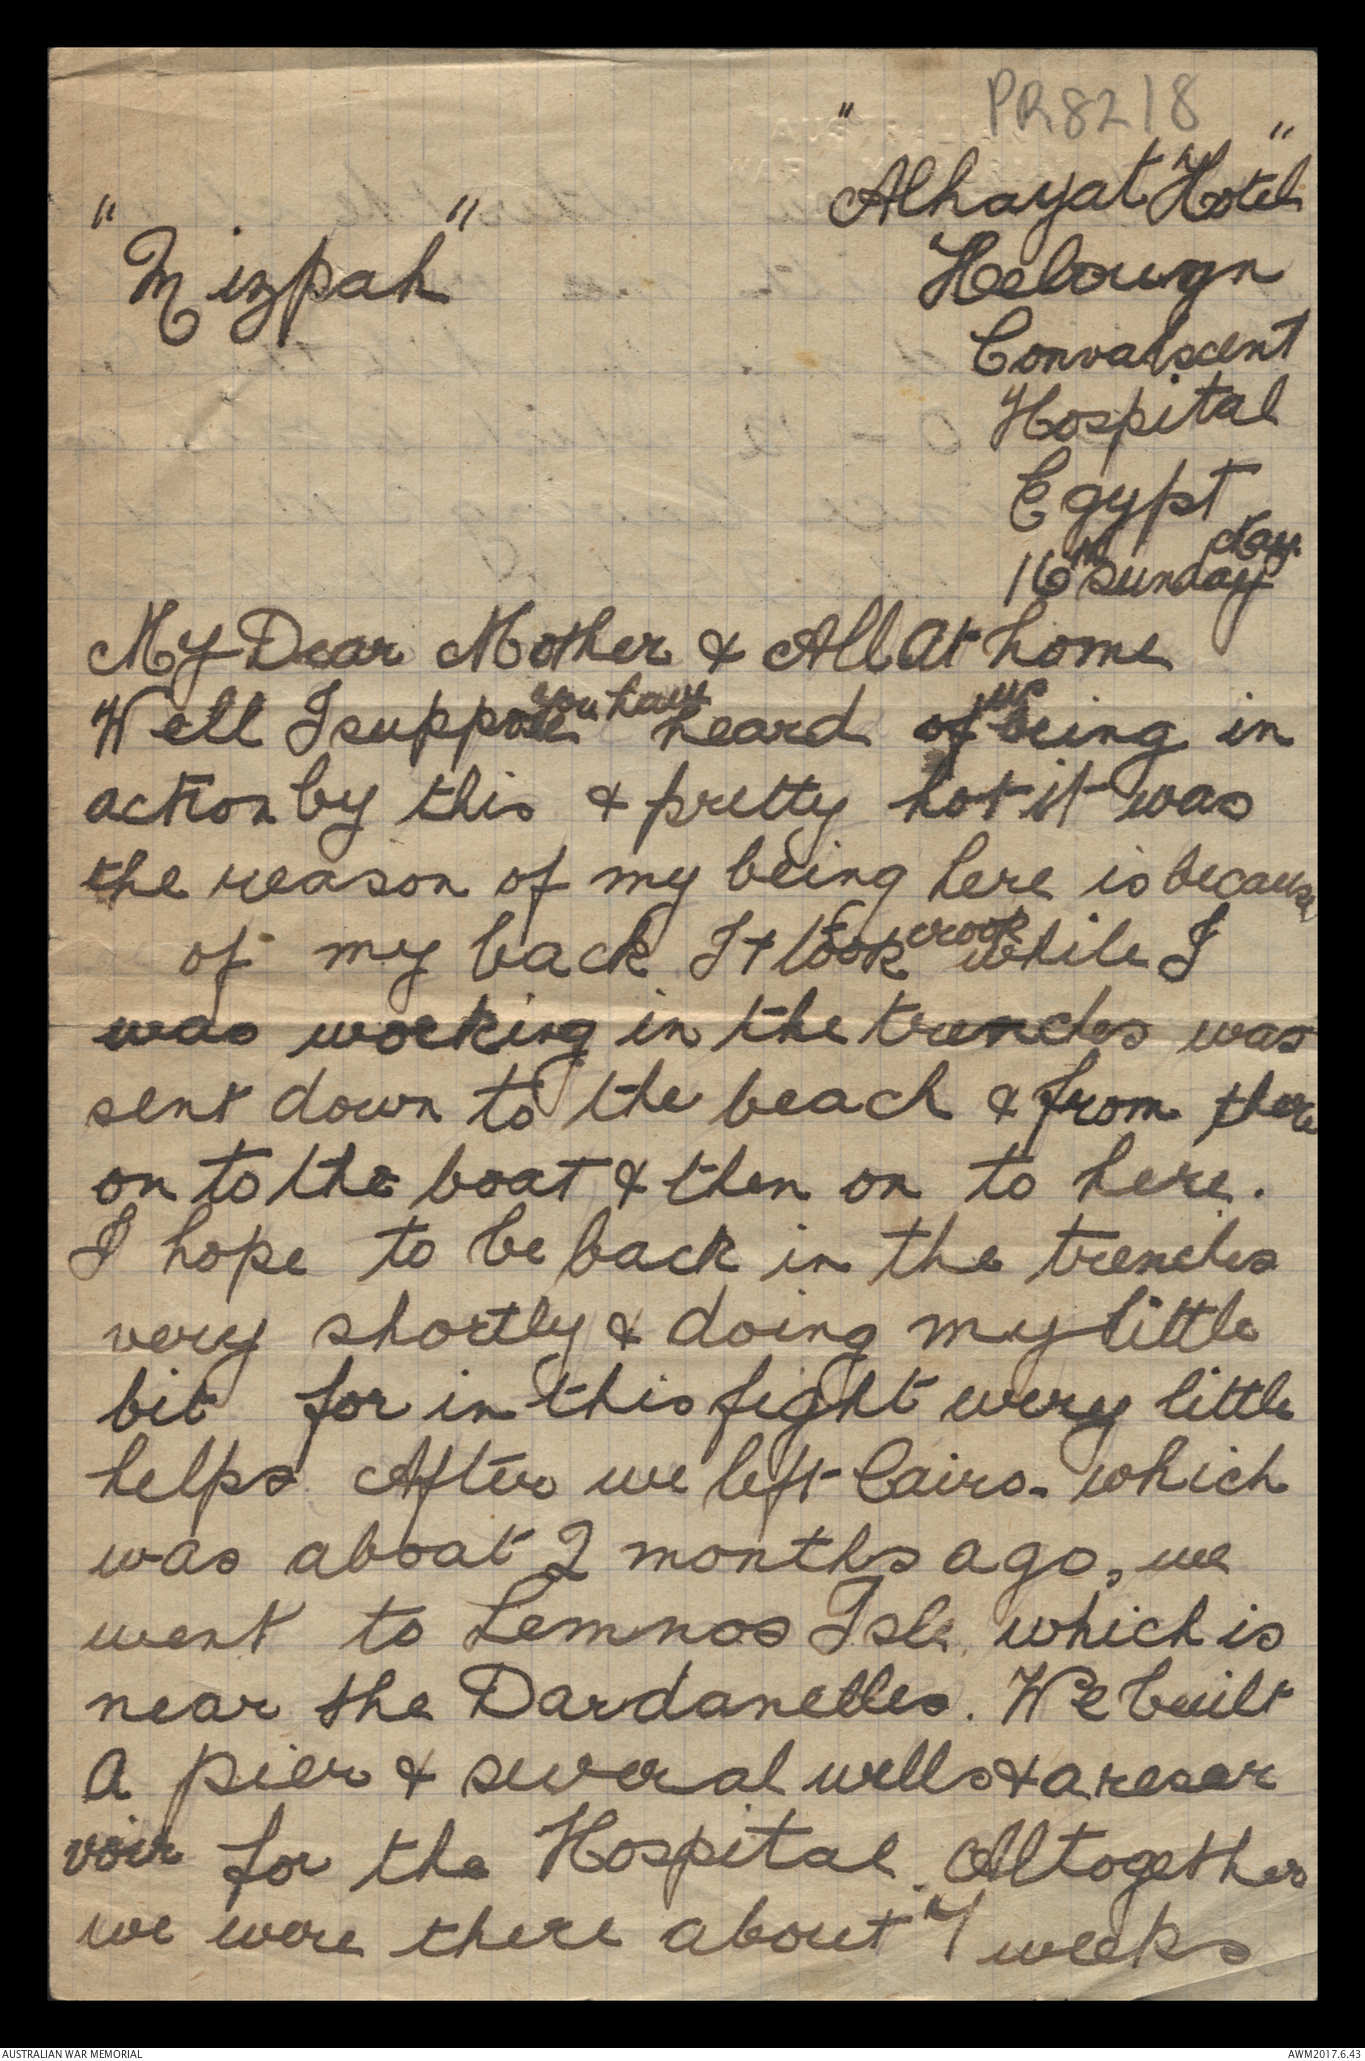 PR8218
"Alhayat Hotel"
"Mizpah"
Helouyn
Convalscent
Hospital
Egypt
16th Sunday May
My Dear Mother & All At home
Well I suppose you have heard of us being in
action by this & pretty hot it was
the reason of my being here is because
of my back It took crook while I
was working in the trenches was
sent down to the beach & from there
on to the boat & then on to here.
I hope to be back in the trenches
very shortly & doing my little
bit for in this fight every little
helps After we left Cairo - which
was aboat 2 months ago, we
went to Lemnos Isle which is
near the Dardanelles. We built
a pier & several wells & a reser
voir for the Hospital. Altogether
we were there about 7 weeks
AUSTRALIAN WAR MEMORIAL
AWM2017.6.43